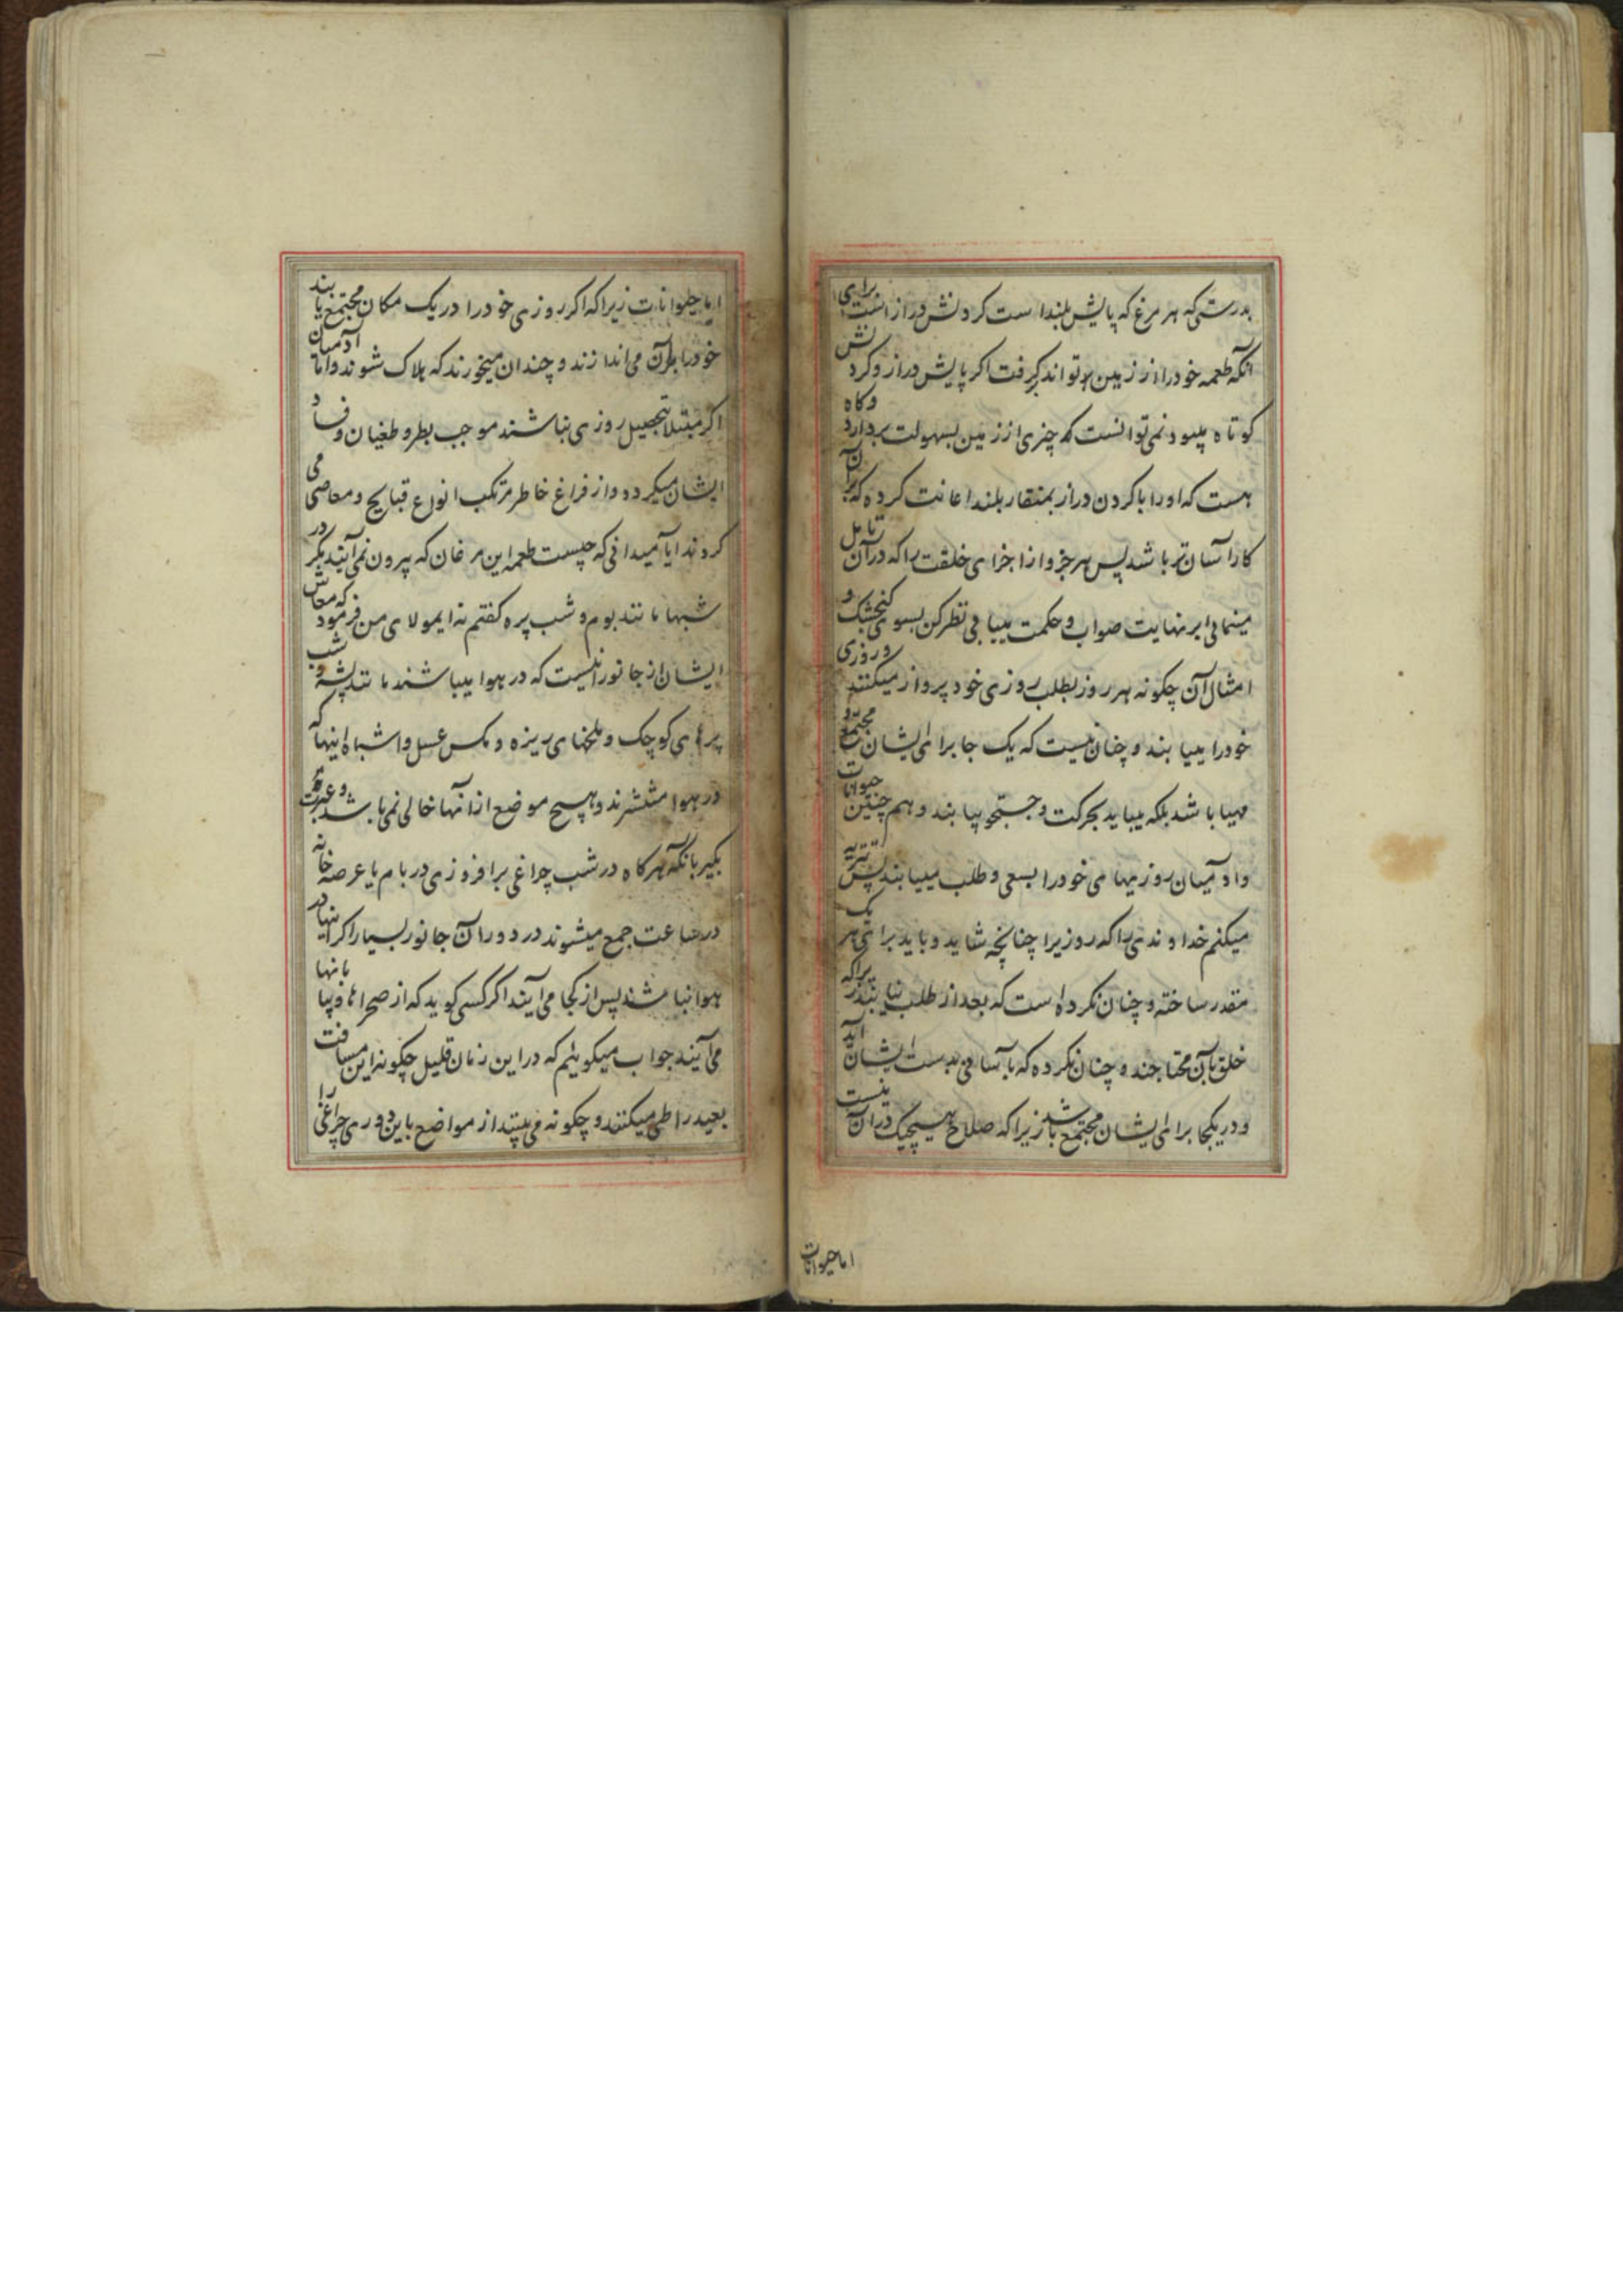 بدرستی که هر مرغ که پایش بلند است کردنش دراز است برای
آنکه طعمه خود را از زمین تواند کرفت اکر پایش دراز و کردنش
کوتاه میبود نمی‌توانست که چیزی از زمین بسهولت بردارد و کاه
هست که او را با کردن دراز بمنقار بلند اعانت کرده که برآن
کار آسان‌تر باشد پس هر جزو از اجزای خلقت را که در آن تامل
مینمائی بر نهایت صواب و حکمت مییابی نظر کن بسوی کنجشک و
امثال آن چکونه هر روز بطلب روزی خود پرواز میکنند و روزی
خود را مییابند و چنان نیست که یک جا برای ایشان مجتمع و
مهیا باشد بلکه میباید بحرکت و جستجو بیابند و هم چنین حیوانات
و آدمیان روزیهای خود را بسعی و طلب مییابند پس تنزیه
میکنم خداوندی را که روزی را چنانچه شاید و باید برای هر یک
مقدر ساخته و چنان نکرده است که بعد از طلب نیابند زیراکه
خلق بآن محتاجند و چنان نکرده که بآسانی بدست ایشان آید
و در یکجا برای ایشان مجتمع باشد زیرا که صلاح هیچیک در آن نیست
اما حیوانات
اما حیوانات زیرا که اکر روزی خود را در یک مکان مجتمع یابند
خود را برآن می‌اندازند و چندان میخورند که هلاک شوند و اما آدمیان
اکر مبتلا بتحصیل روزی نباشند موجب بطر و طغیان و فساد
ایشان میکردد و از فراغ خاطر مرتکب انواع قبایح و معاصی می
کردند ایا میدانی که چیست طعمه این مرغان که بیرون نمی‌آیند مکر در
شبها مانند بوم و شب پره کفتم نه ایمولای من فرمود که معاش
ایشان از جانورانیست که در هوا میباشند مانند پشه و شب
پرهای کوچک و ملخهای ریزه و مکس عسل و اشباه اینها که
در هوا منتشرند و هیچ موضع از آنها خالی نمی‌باشد و عبرت
بکیر بآنکه هرکاه در شب چراغی برافروزی در بام یا عرصه خانه
در ساعت جمع میشوند در دور آن جانور بسیار اکر اینها در
هوا نباشند پس از کجا می‌آیند اکر کسی کوید که از صحراها و بیابانها
می‌آیند جواب میکوئیم که در این زمان قلیل چکونه این مسافت
بعید را طی میکنند و چکونه می‌بینند از مواضع باین دوری چراغی را